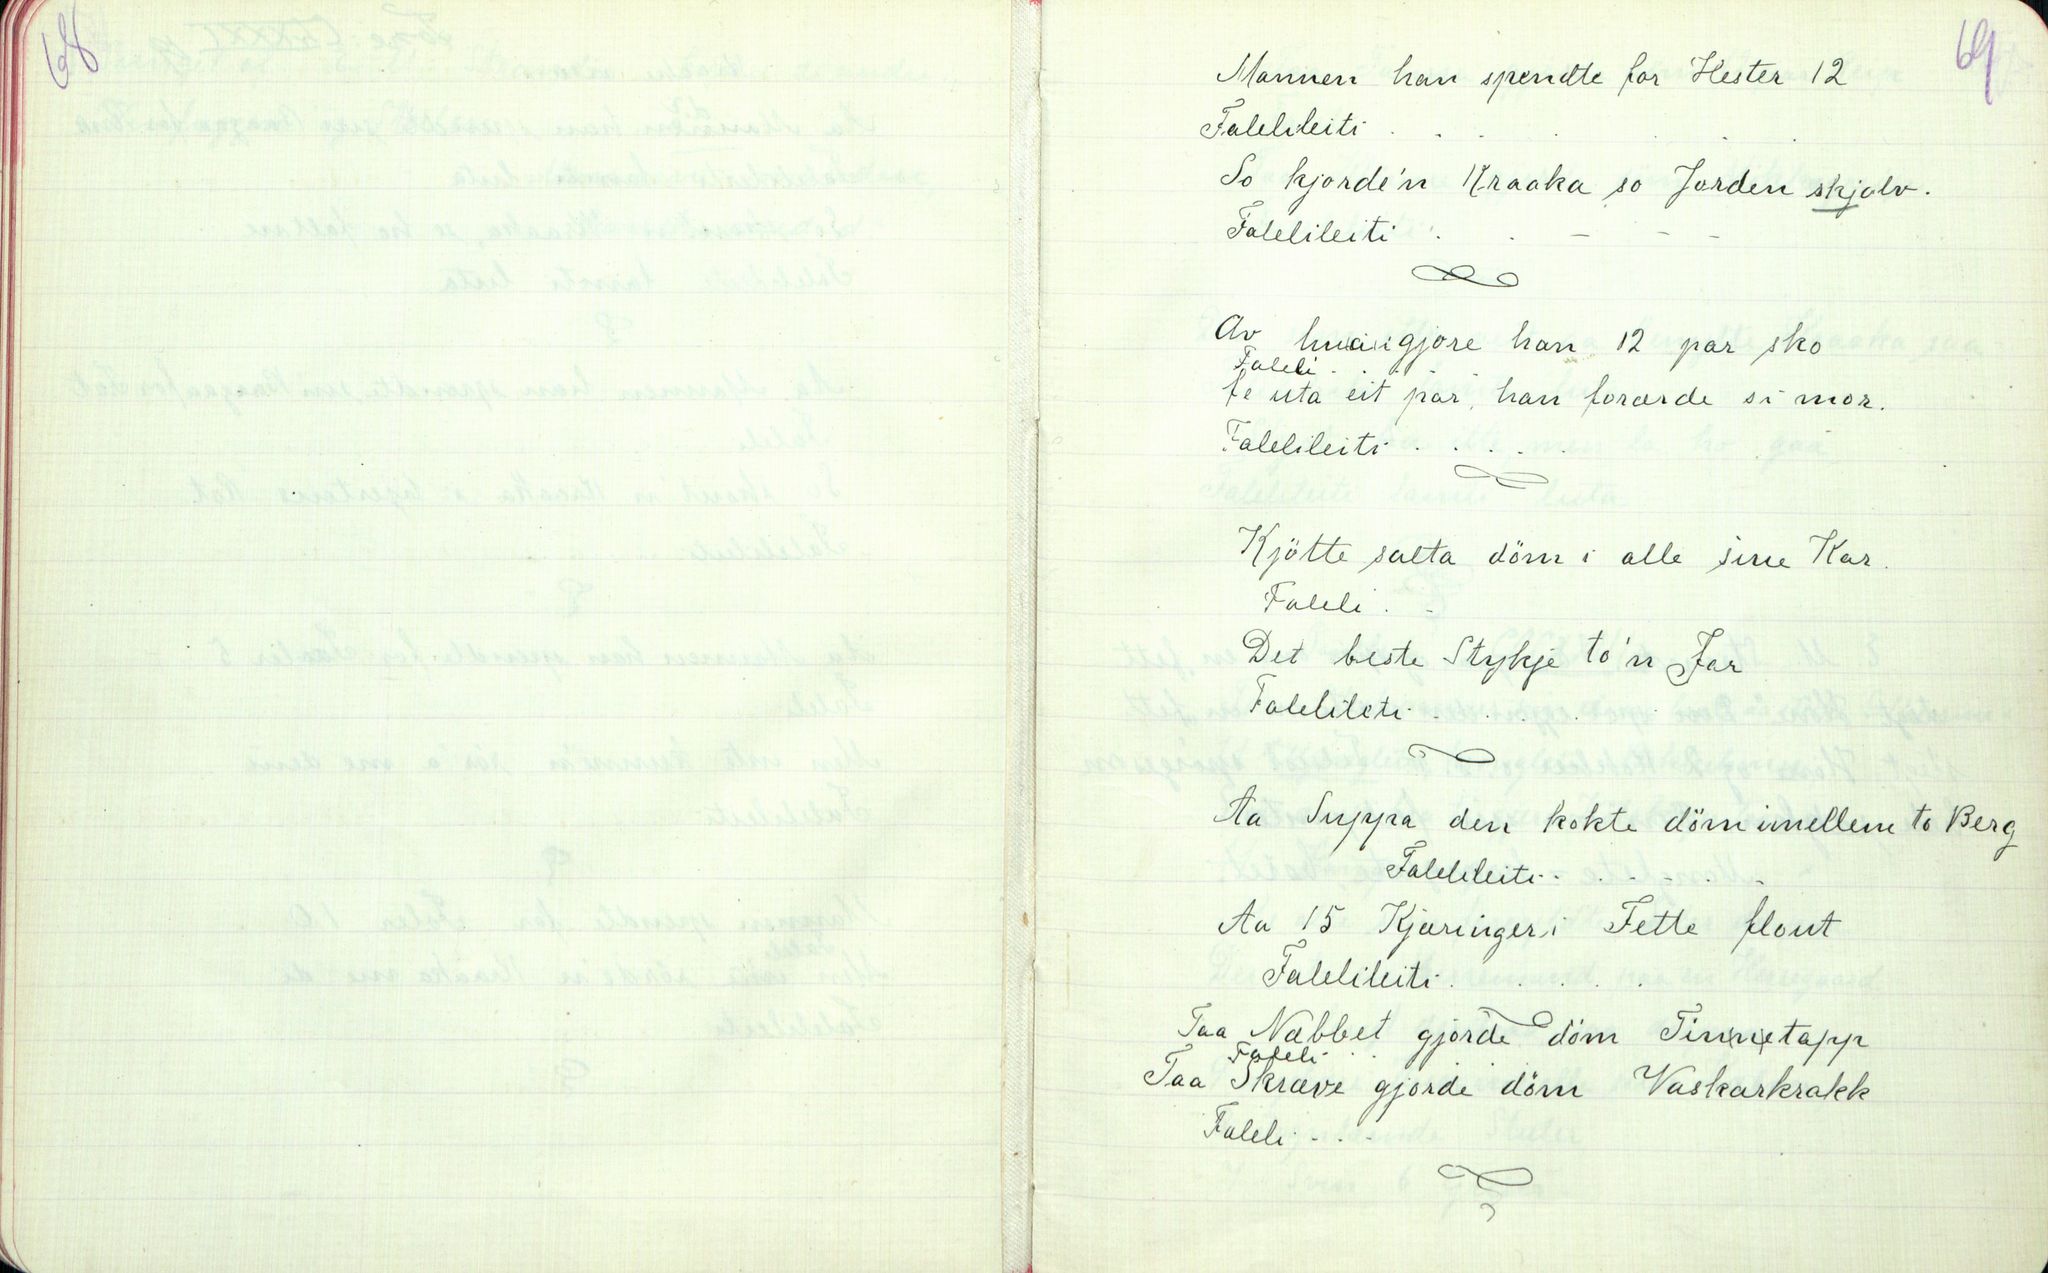 68
69
Mannen han spendte for Hester 12
Falelileiti . . . . . .
So kjorde'n Kraaka so Jorden skjalv.
Falelileiti . . — — —
Av gjore han 12 par sko
Faleli . . . .
te uta eit par, han forærde si mor.
Falelileiti . . . . .
Kjötte salta döm i alle sine Kar.
Faleli . .
Det beste Stykje to'n Far
Falelileti . . . . .
Aa Suppa den kokte döm imellem to Berg
Falelileiti . . . . . .
Aa 15 Kjæringer i Fette flout
Falelileiti . . . . .
Taa Næbbet gjorde döm Tinnetapp
Faleli . . .
Taa Skræve gjorde döm Vaskarkrakk
Faleli . . .